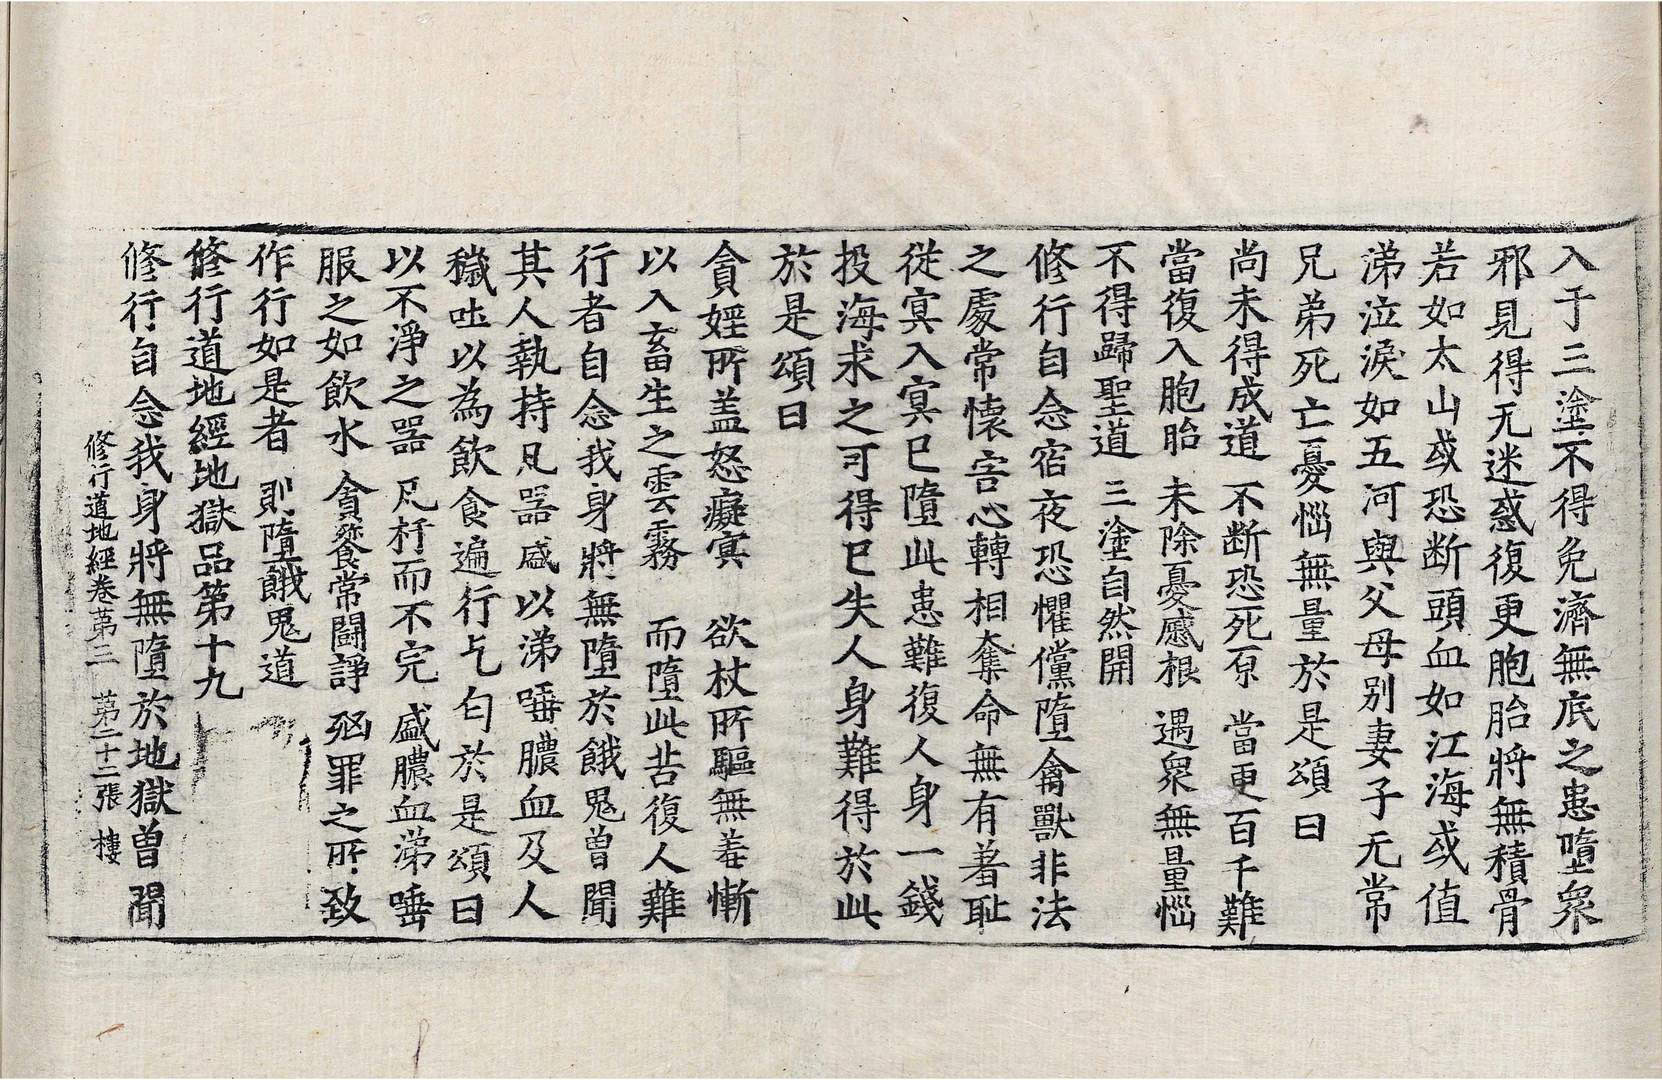 入于三塗不得免濟無底之患墮衆
邪見得无迷惑復更胞胎將無積骨
若如太山或恐断頭血如江海或值
涕泣淚如五河與父母别妻子无常
兄弟死亡憂惱無量於是頌曰
尚未得成道 不断恐死原 當更百千難
當復入胞胎 未除憂慼根 遇衆無量惱
不得歸聖道 三塗自然開
修行自念宿夜恐懼儻墮禽獸非法
之處常懷害心轉相奪命無有羞耻
從冥入冥已墮此患難復人身一錢
投海求之可得已失人身難得於此
於是頌曰
貪婬所盖怒癡冥 欲杖所驅無羞慚
以入畜生之雲霧 而墮此苦復人難
行者自念我身將無墮於餓鬼曾聞
其人執持凡器盛以涕唾膿血及人
穢吐以為飲食遍行乞匂於是頌曰
以不淨之器 凡杅而不完 盛膿血涕唾
服之如飲水 貪飻常鬪諍 㓙罪之所致
作行如是者 則墮餓鬼道
修行道地經地獄品第十九
修行自念我身將無墮於地獄曾聞
修行道地經卷第三 第二十二張 樓